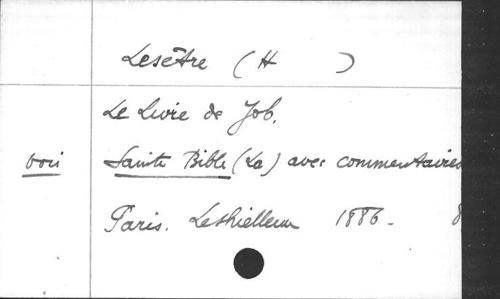 Lesêtre (H )
Le Livre de Job.
voir Sainte Bible (La) avec commentaires
Paris. Lethielleux 1886 - 8